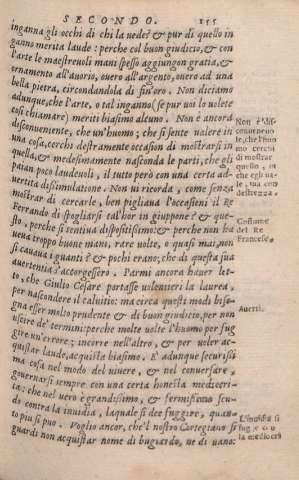 SECONDO. 155
inganna gli occhi di chi la vede? & pur di quello in
ganno merita laude: perche col buon giudicio, & con
l'arte le maestrevoli mani spesso aggiungon gratia, &
ornamento all'avorio, overo all'argento, overo ad una
bella pietra, circondandola di fin'oro. Non diciamo
adunque, che l'arte, o tal inganno (se pur voi lo volete
così chiamare) meriti biasimo alcuno. Non è ancora
disconveniente, che un'huomo; che si sente valere in
una cosa, cerchi destramente occasion di mostrarsi in
quella, & medesimamente nasconda le parti, che gli
paian poco laudevoli, il tutto però con una certa ad-
vertita dissimulatione. Non vi ricorda, come senza
mostrar di cercarle, ben pigliava l'occasioni il Re
Ferrando di spogliarsi tal'hor in giuppone? & que-
sto, perche si sentiva dispostissimo: & perche non ha
veva troppo buone mani, rare volte, o quasi mai, non
si cavava i guanti? & pochi erano; che di questa sua
avertentia s'accorgessero. Parmi ancora haver let-
to, che Giulio Cesare portasse volentieri la laurea,
per nascondere il calvitio: ma circa questi modi biso-
gna esser molto prudente & di buon giudicio, per non
uscire de' termini: perche molte volte l'huomo per fug
gire un'errore; incorre nell'altro, & per voler ac-
quistar laude, acquista biasimo. E' adunque securissi
ma cosa nel modo del vivere, & nel conversare,
governarsi sempre con una certa honesta mediocri-
ta: che nel vero è grandissimo, & fermissimo scu-
do contra la invidia, laquale si dee fuggire, quan-
to piu si puo. Voglio ancor, che'l nostro Cortegiano si
guardi non acquistar nome di bugiardo, ne di vano:
Non è di-
mo cerchi
di mostrar
quello, in
destrezza.
Costume
del Re
Francese.
Averti.
L'invidia si
la mediocri